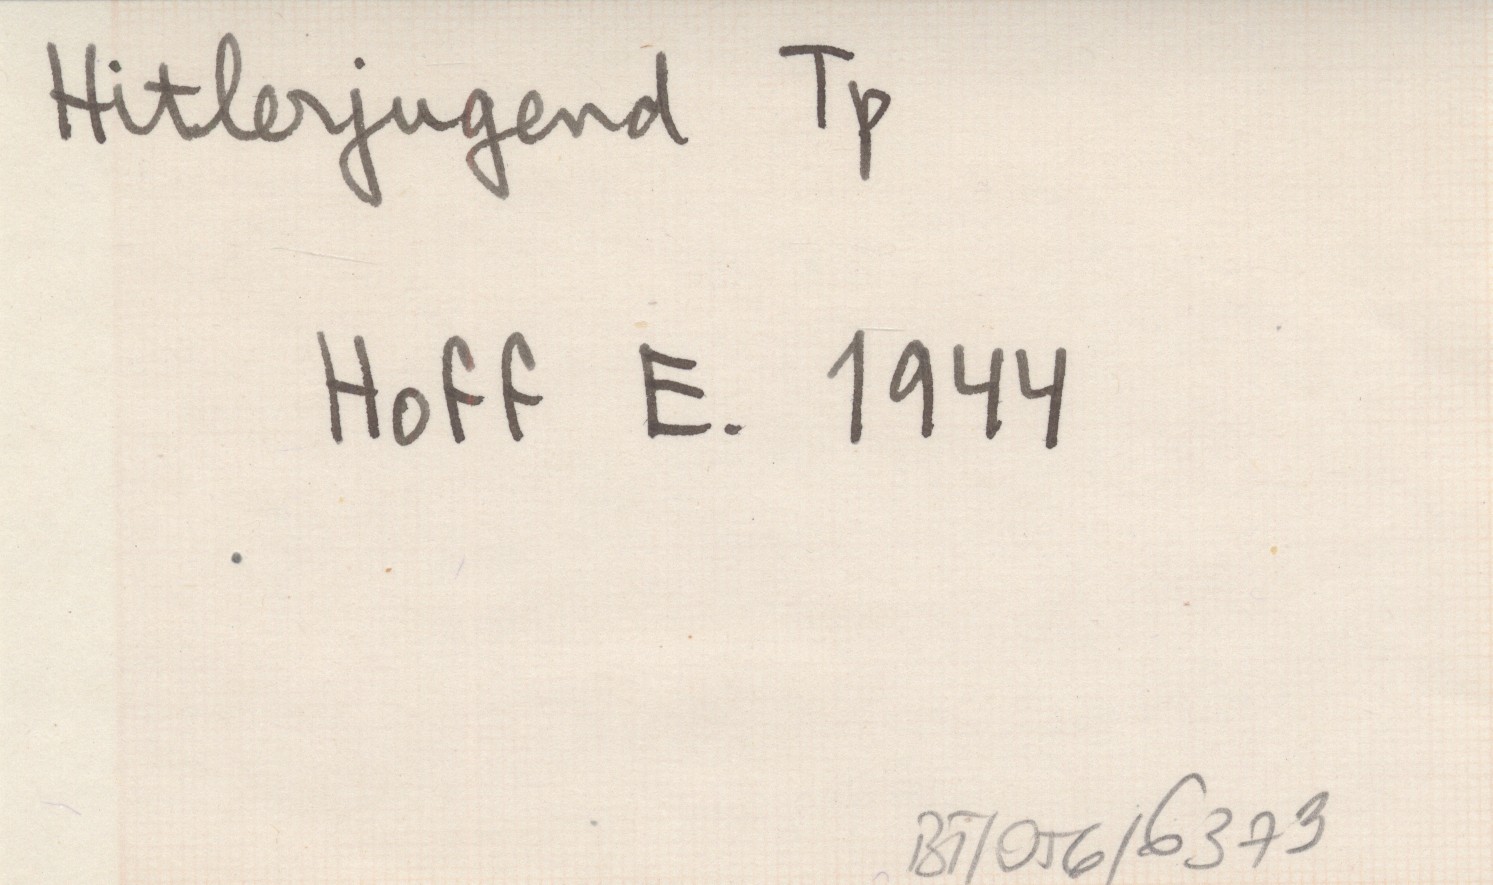 Hitlerjugend Tp
Hoff E. 1944
BT/056/6373